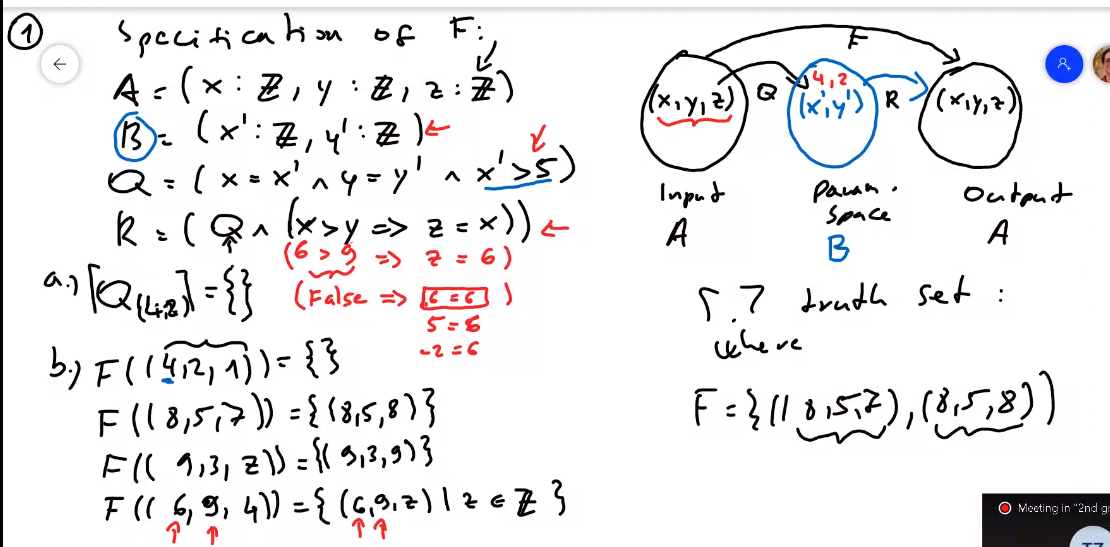 ① Specification of F:
A = (x : ℤ, y : ℤ, z : ℤ)
B = (x' : ℤ, y' : ℤ) ←
Q = (x = x' ∧ y = y' ∧ x' > 5)
R = (Q ∧ (x > y => z = x)) ←
(6 > 9 => z = 6)
a.) ⌈Q(4,2)⌉ = {}
(False => 6 = 6)
5 = 6
-2 = 6
b.) F((4,2,1)) = {}
F((8,5,7)) = {(8,5,8)}
F((9,3,z)) = {(9,3,9)}
F((6,9,4)) = {(6,9,z) | z ∈ ℤ}
F
4,2
(x,y,z) Q (x',y') R (x,y,z)
Input Param. Output
Space
A B A
⌈.⌉ truth set :
where
F = {((8,5,7),(8,5,8))
Meeting in "2nd g